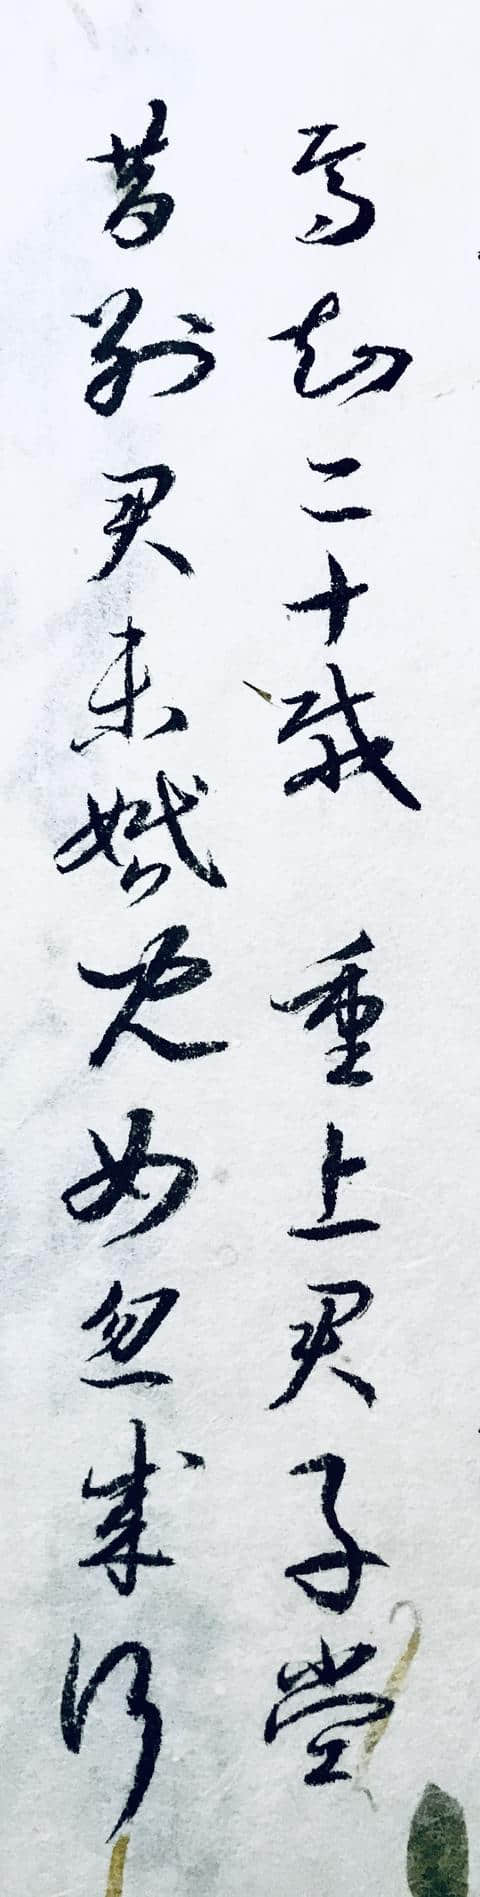 焉知二十载重上君子堂
昔别君未婚儿女忽成行